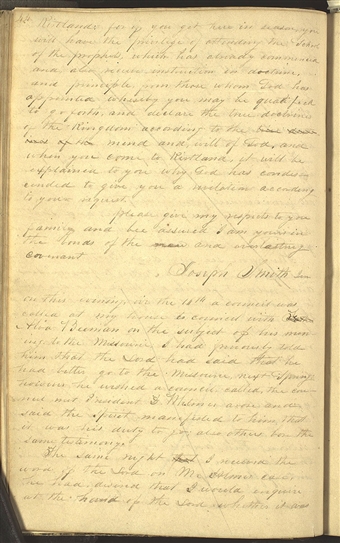 Kirtland for if you get here in season you
will have the privilege of attending the School
of the prophets, which has already commenced
and also receive instruction in doctrine,
and principle, from those whom God has
appointed whereby you may be qualified
to go forth, and declare the true doctrines
of the Kingdom according to the
mind and will of God, and
when you come to Kirtland, it will be
explained to you why God has condes
cended to give you a revelation according
to your request.
please give my respects to you
family, and bee assured I am yours in
the bonds of the new and everlasting
covenant
Joseph Smith Jun
on this evening, viz the 14th a council was
called at my house to council with
Alva Beeman on the subject of his mov
ing to the Missouri I had previously told
him that the Lord had said that he
had better go to the Missouri, next Spring
however he wished a council, called, the coun
cil met President D. Whitmer arose and
said the Spirit manifested to him that
it was his duty to go also others bore the
same testimony
The same night I received the
word of the Lord on Mr. he
had desired that I would enquire
at the hand of the Lord whether it was